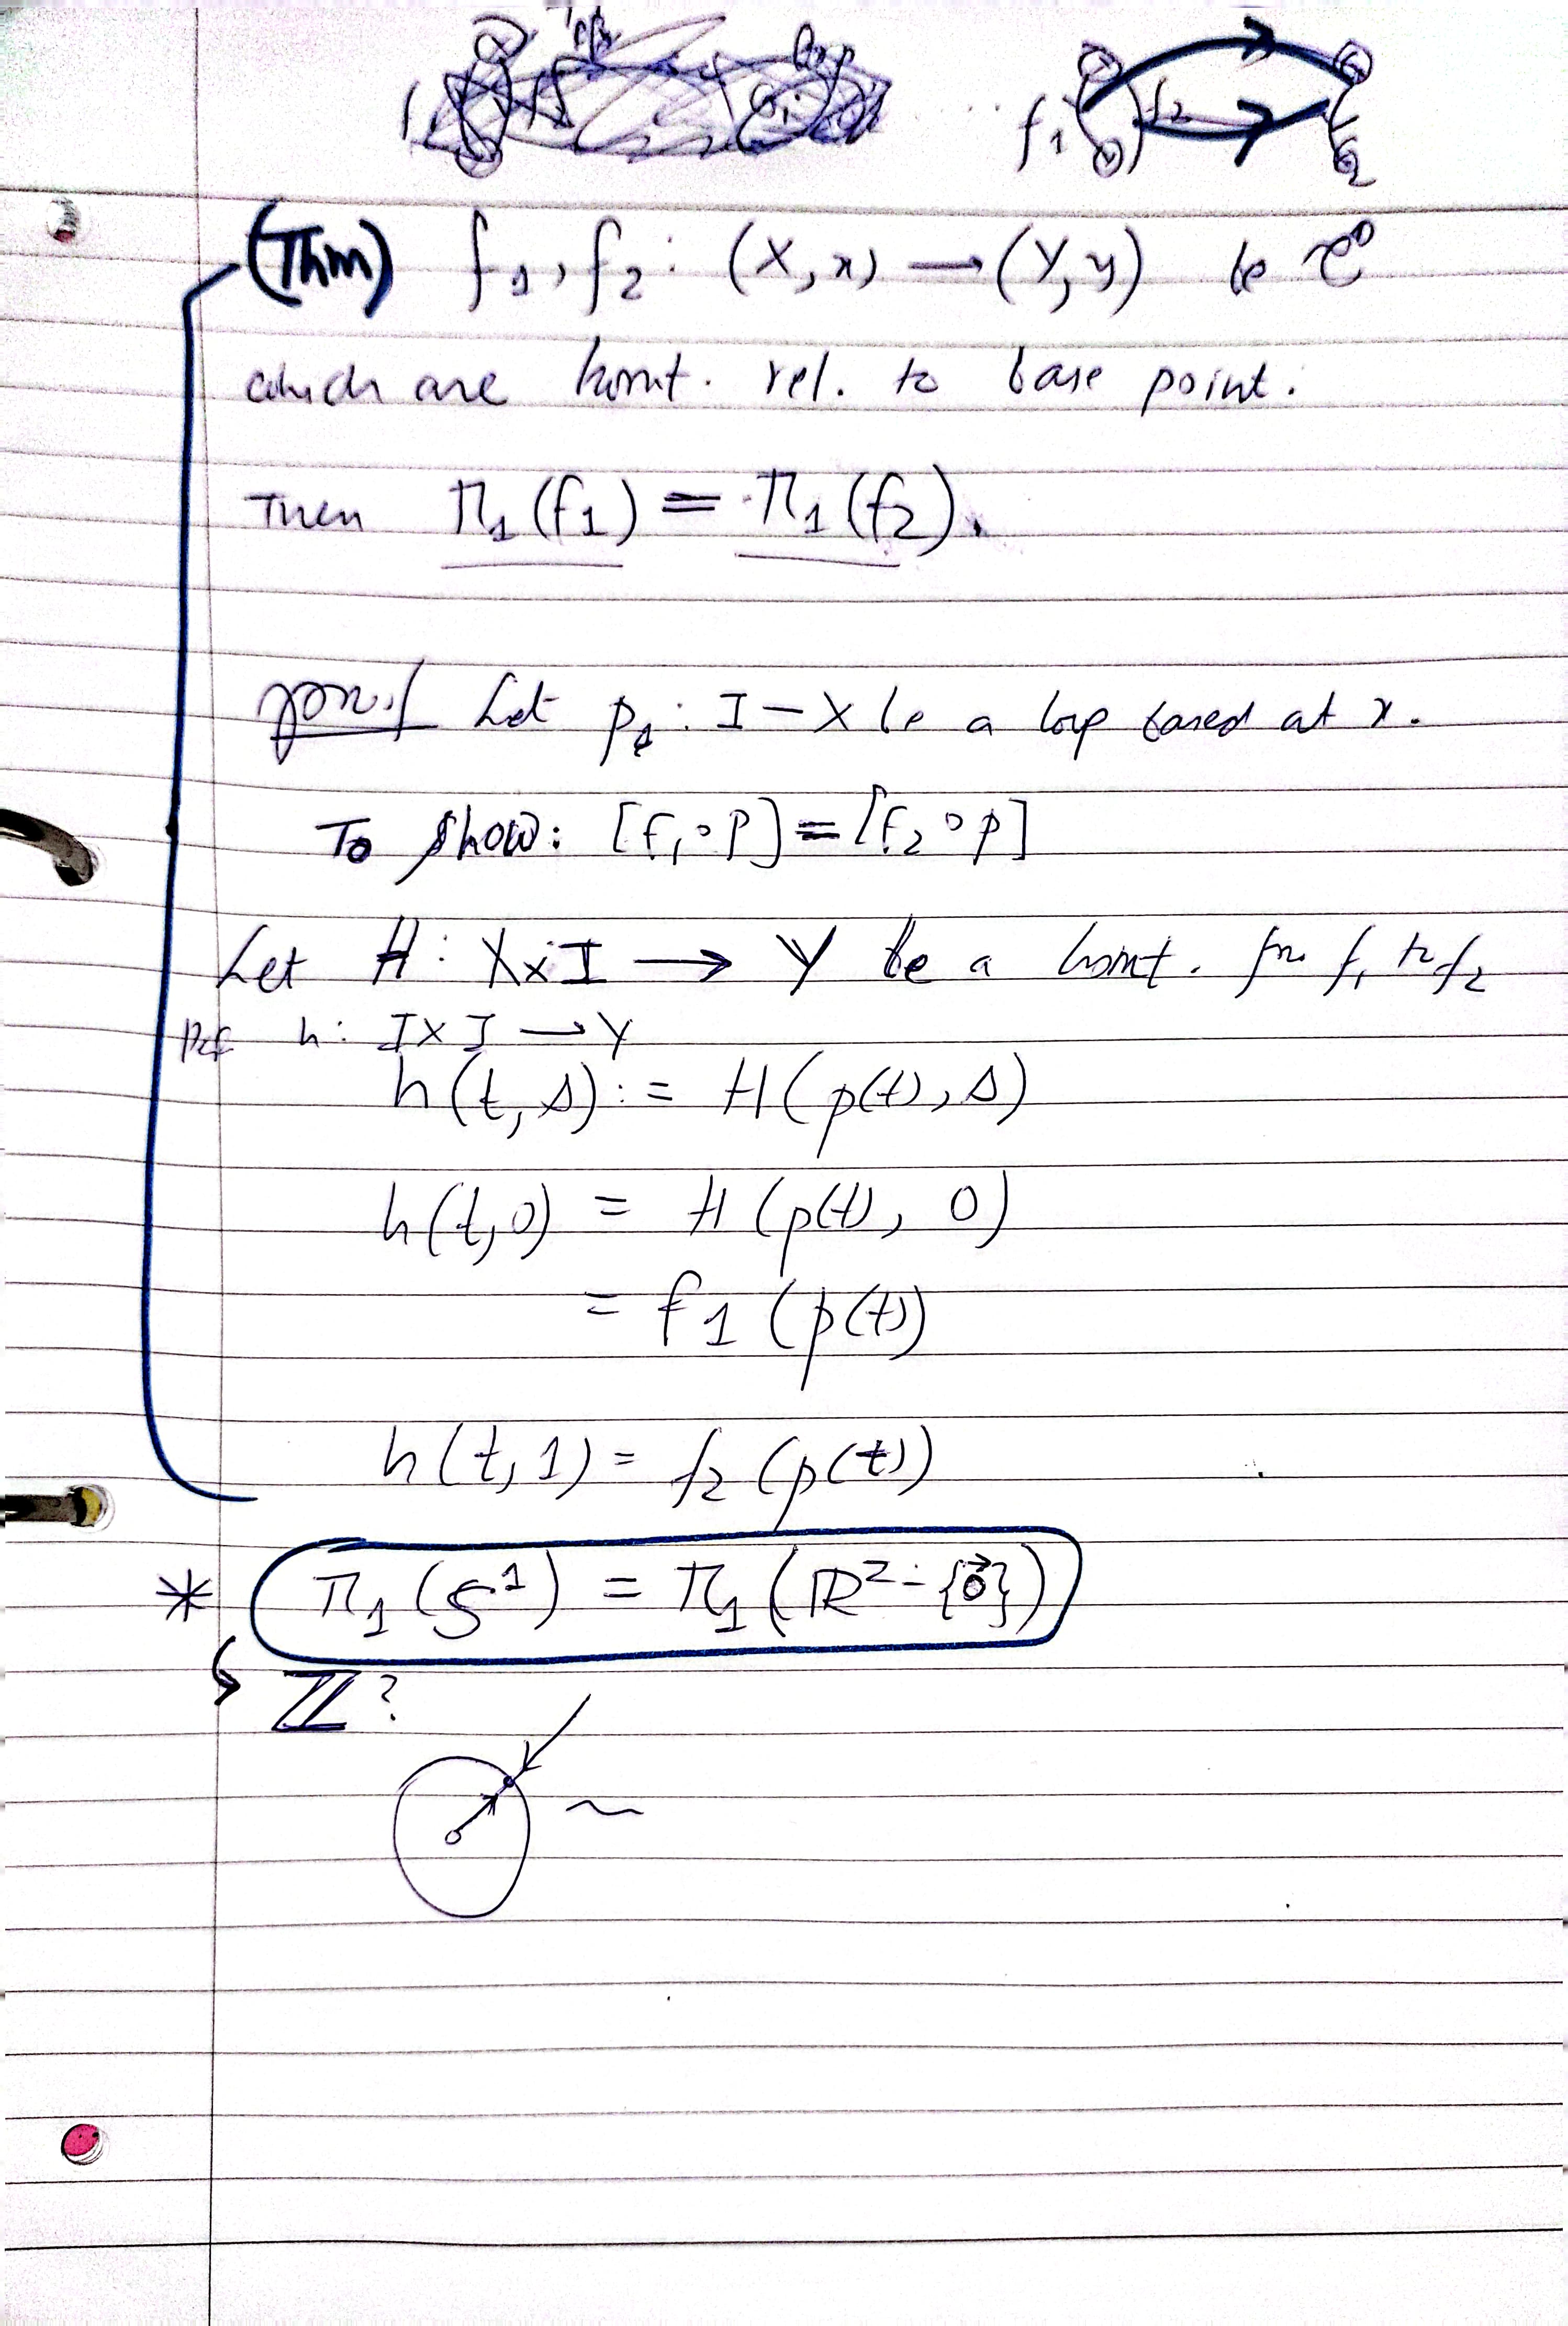 f1 f2
(Thm) f1, f2 : (X, x) → (Y, y) be C⁰
which are homt. rel. to base point.
Then π1(f1) = π1(f2).
proof Let p : I → X be a loop based at x.
To show: [f1∘p] = [f2∘p]
Let H : X×I → Y be a homt. fm f1 to f2
Def h : I×I → Y
h(t, s) := H(p(t), s)
h(t, 0) = H(p(t), 0)
= f1(p(t)
h(t, 1) = f2(p(t))
* π1(S¹) = π1(ℝ² - {0⃗})
↳ ℤ?
~